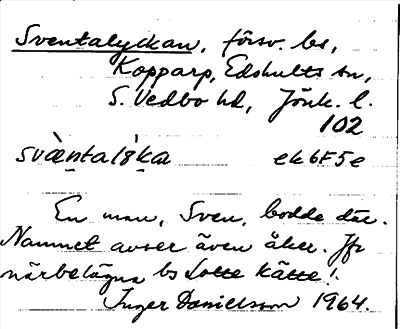 Sventalyckan, försv. bs,
Kopparp, Edshults sn,
S. Vedbo hd, Jönk. l.
102
svæ̀nta lykan ek 6F5e
En man, Sven, bodde där.
Namnet avser även åker. Jfr
närbelägna bs Lotte Kätte!
Inger Danielsson 1964.